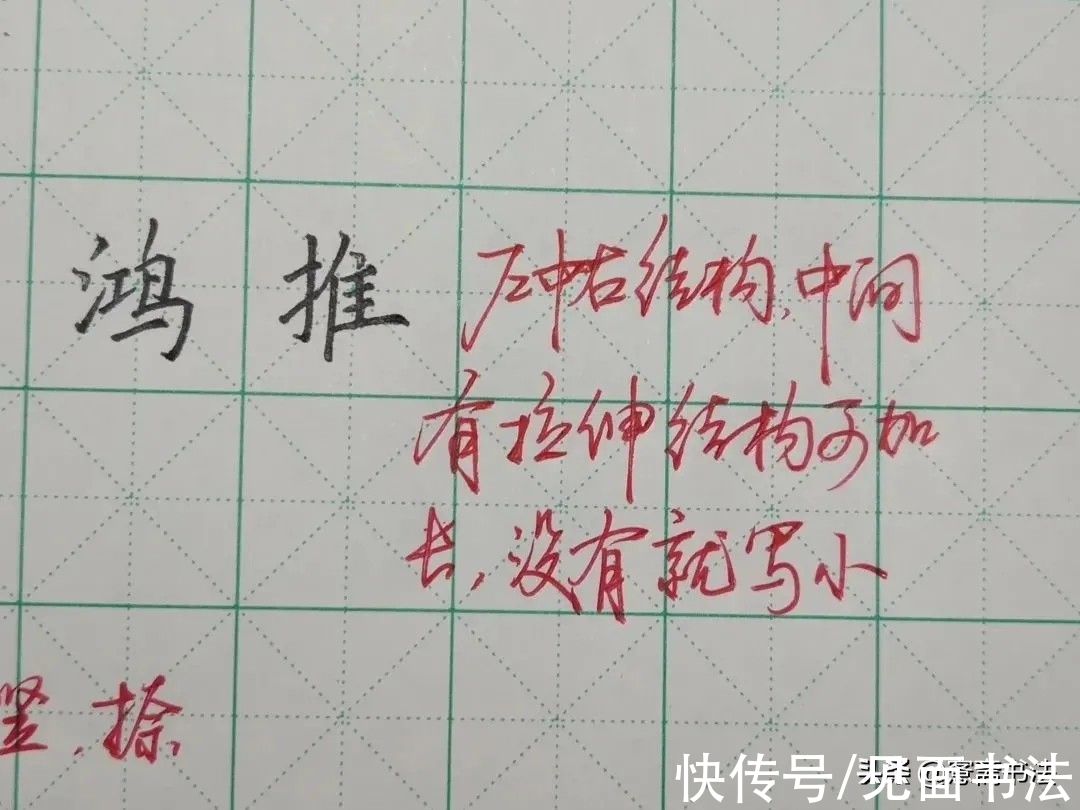 鸿 推 左中右结构,中间
有拉伸结构可加
长,没有就写小
竖,捺,
快传号/见面书法
头条
书法